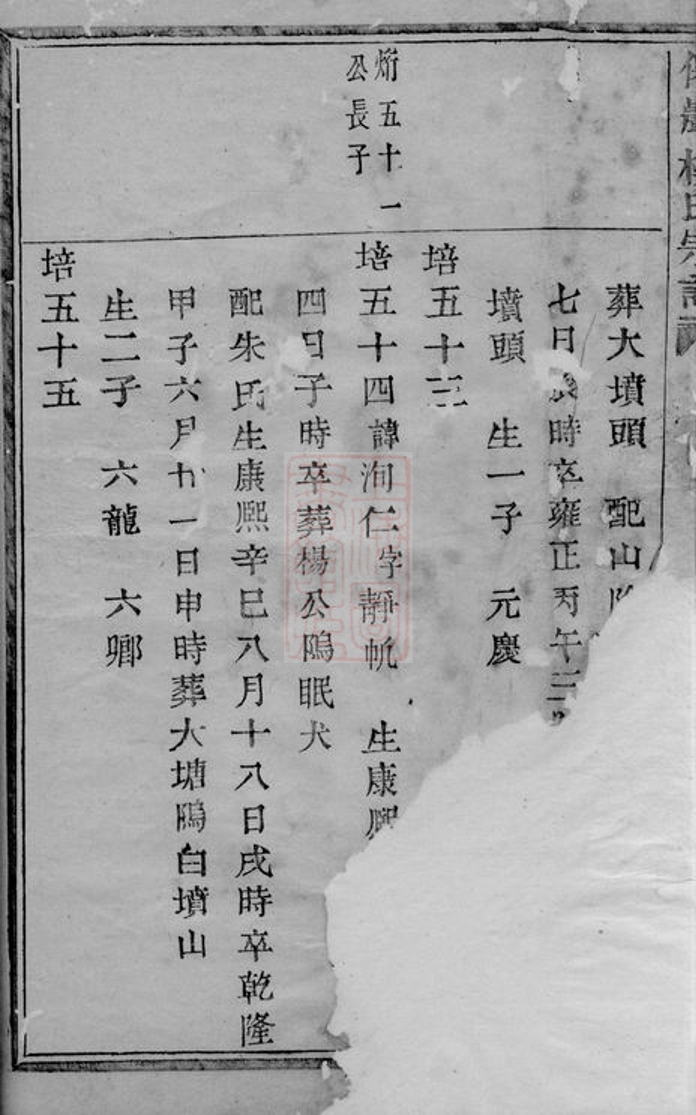 氏宗譜
葬大墳頭 配山
七日辰時卒雍正丙午三
墳頭 生一子 元慶
培五十三
炘五十一
公長子
培五十四諱洵仁字靜帆 生康熙
四日子時卒葬楊公隝眠犬
配朱氏生康熙辛巳八月十八日戌時卒乾隆
甲子六月廿一日申時葬大塘隝白墳山
生二子 六龍 六卿
培五十五